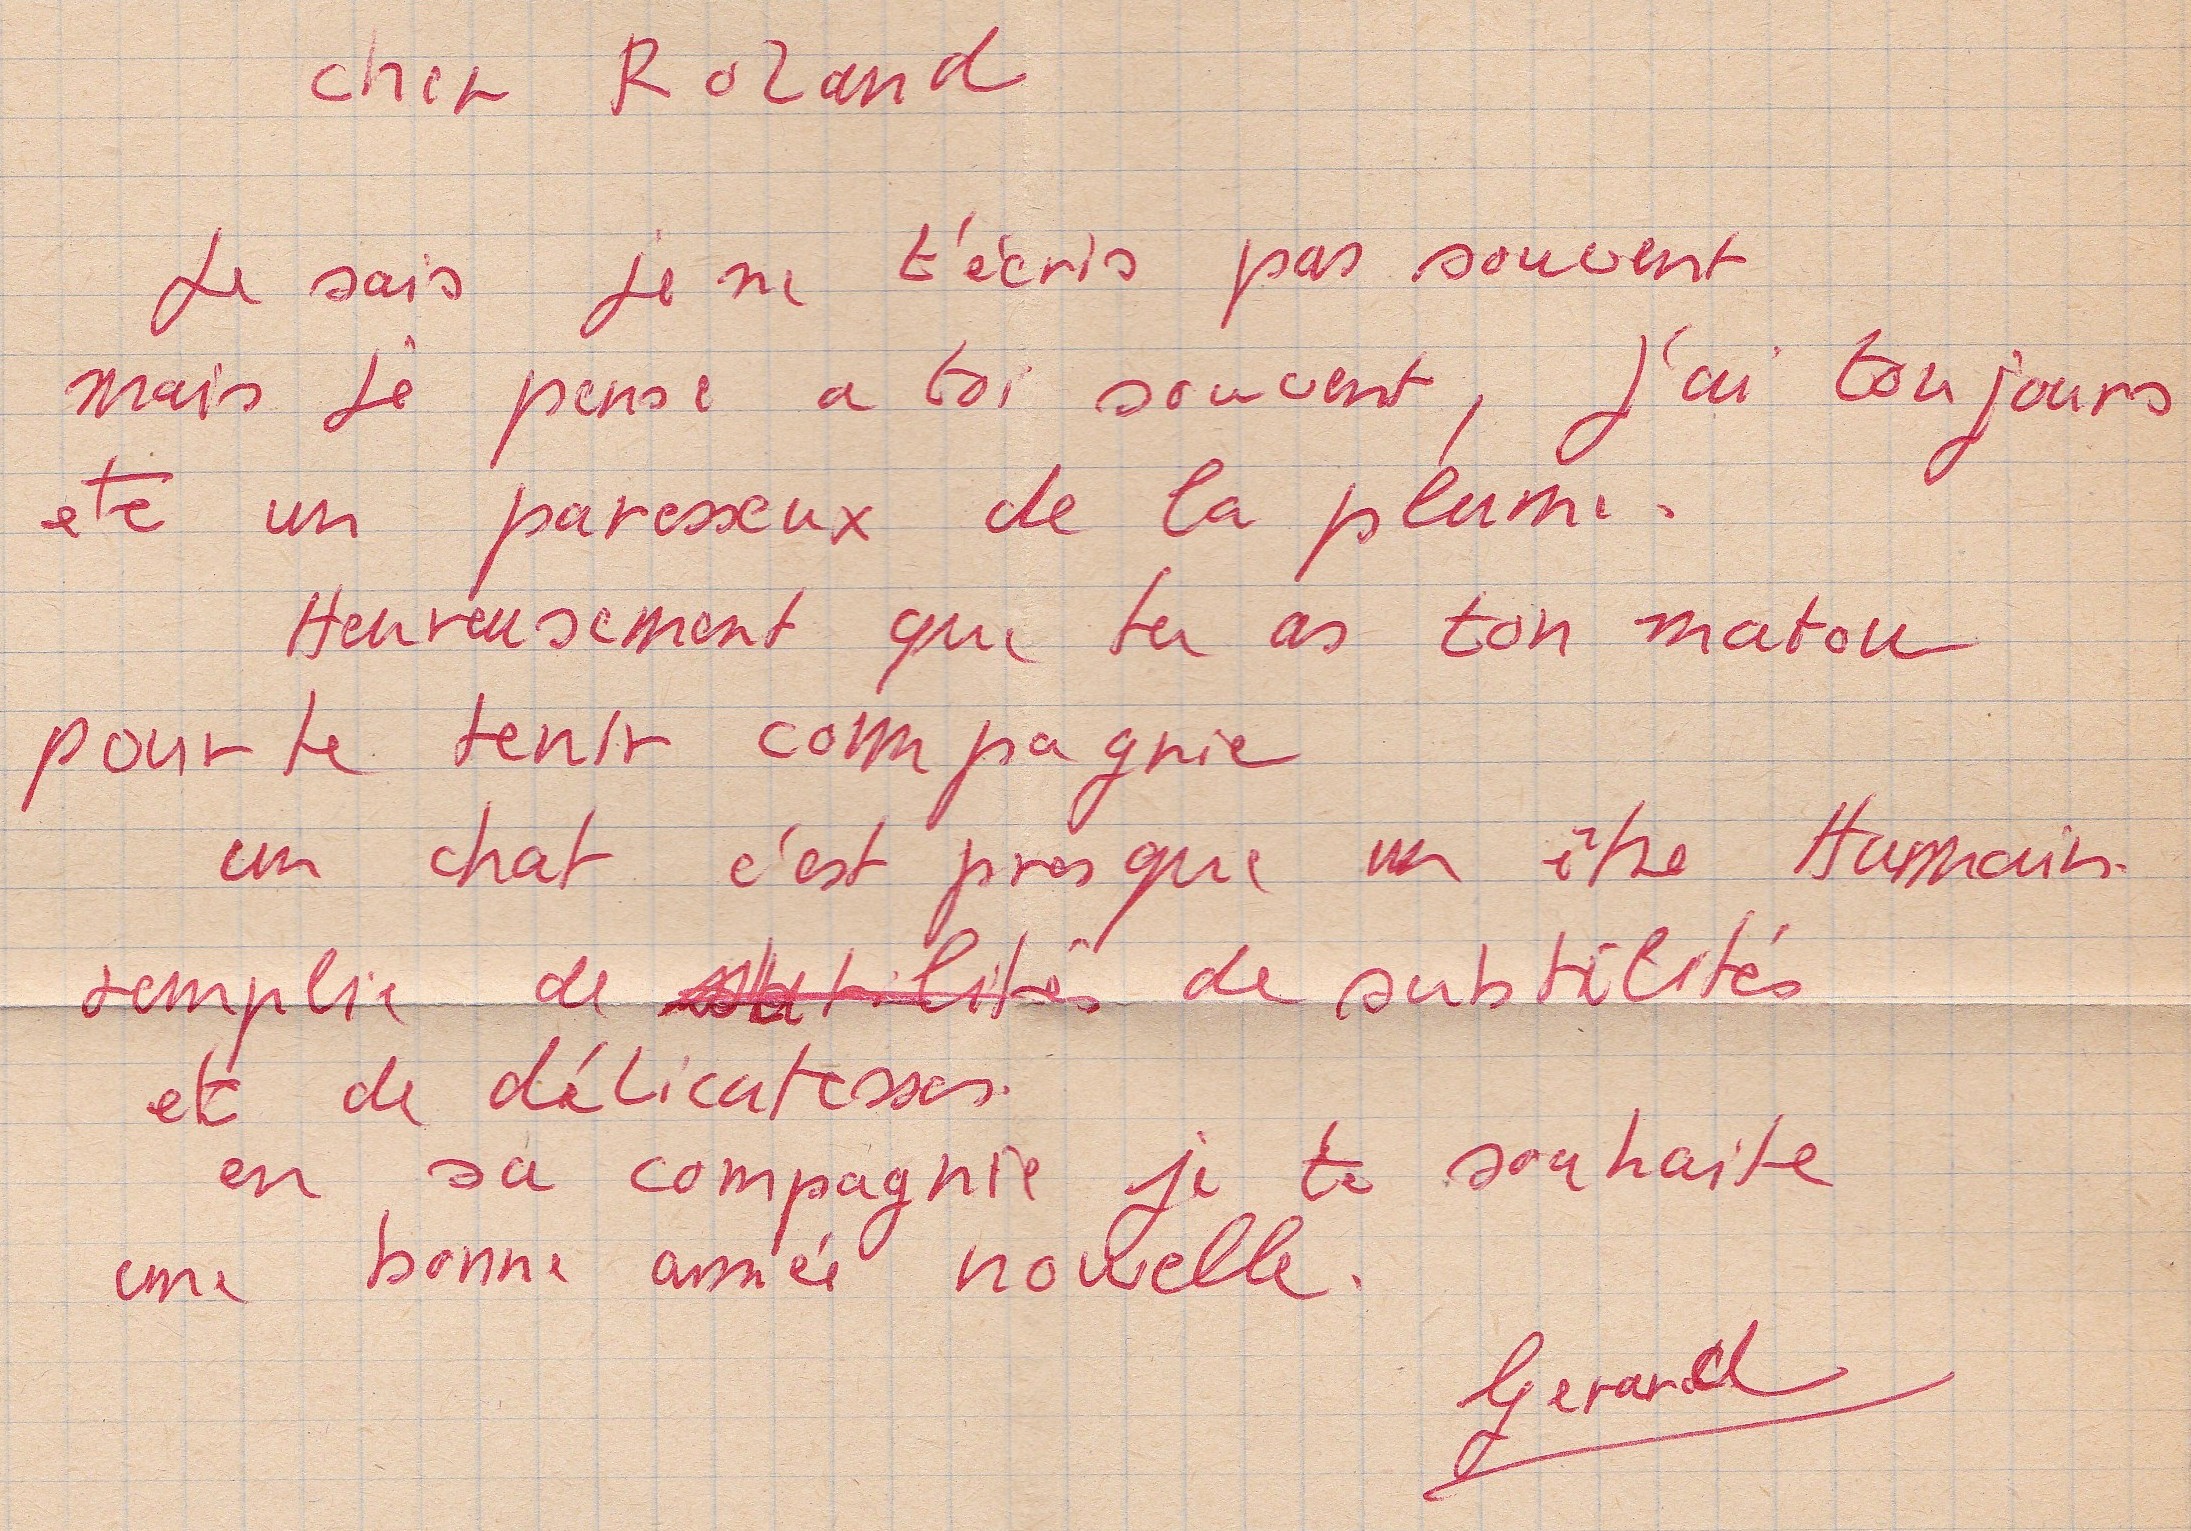 cher Roland
Je sais je ne t'écris pas souvent
mais je pense a toi souvent, j'ai toujours
eté un paresseux de la plume.
Heureusement que tu as ton matou
pour te tenir compagnie
un chat c'est presque un être Humain
remplie de subtilités de subtilités
et de délicatesses.
en sa compagnie je te souhaite
une bonne année nouvelle.
Gerard